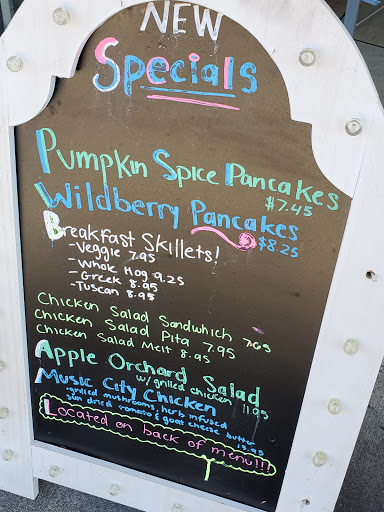 NEW
Specials
Pumpkin Spice Pancakes
$7.45
Wildberry Pancakes
$8.25
Breakfast Skillets!
-Veggie 7.95
-Whole Hog 9.25
-Greek 8.95
-Tuscan 8.95
Chicken Salad Sandwhich
Chicken Salad Pita 7.95
Chicken Salad Melt 8.95
Apple Orchard Salad
w/ grilled chicken 11.95
Music City Chicken
-grilled mushrooms, herb infused
sun dried tomato & goat cheese butter
Located on back of menu!!!